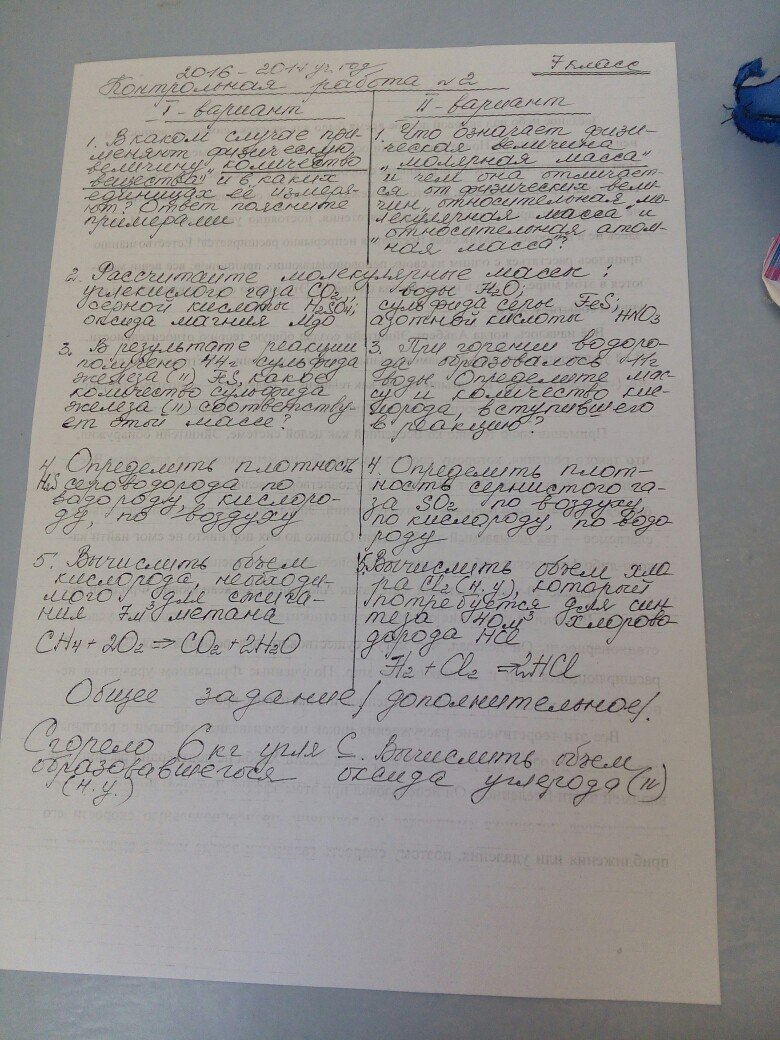 2016 - 2017 уч. год
7 класс
Контрольная работа №2
I - вариант
1. В каком случае при-
меняют физическую
величину „количество
вещества" и в каких
единицах её измеря-
ют? Ответ поясните
примерами
2. Рассчитайте молекулярные массы:
углекислого газа CO2;
серной кислоты H2SO4;
оксида магния MgO
3. В результате реакции
получено 44г сульфида
железа (II) FeS, какое
количество сульфида
железа (II) соответству-
ет этой массе?
4. Определить плотность
H2S сероводорода по
водороду, кислоро-
ду, по воздуху
5. Вычислить объем
кислорода, необходи-
мого для сжига-
ния 7м³ метана
CH4 + 2O2 ⇒ CO2 + 2H2O
II - вариант
1. Что означает физи-
ческая величина
„молярная масса"
и чем она отличает-
ся от физических вели-
чин „относительная мо-
лекулярная масса" и
„относительная атом-
ная масса"?
воды H2O;
сульфида серы FeS;
азотной кислоты HNO3
3. При горении водоро-
да образовалось
воды. Определите мас-
су и количество кис-
лорода, вступившего
в реакцию?
4. Определить плот-
ность сернистого га-
за SO2 по воздуху,
по кислороду, по водо
роду
5. Вычислить объем хло
ра Cl2 (н.у), который
потребуется для син
теза 40м³ хлорово
дорода HCl
H2 + Cl2 ⇒ 2HCl
Общее задание / дополнительное/.
Сгорело 6 кг угля C. Вычислить объем
образовавшегося оксида углерода (II)
(н.у.)